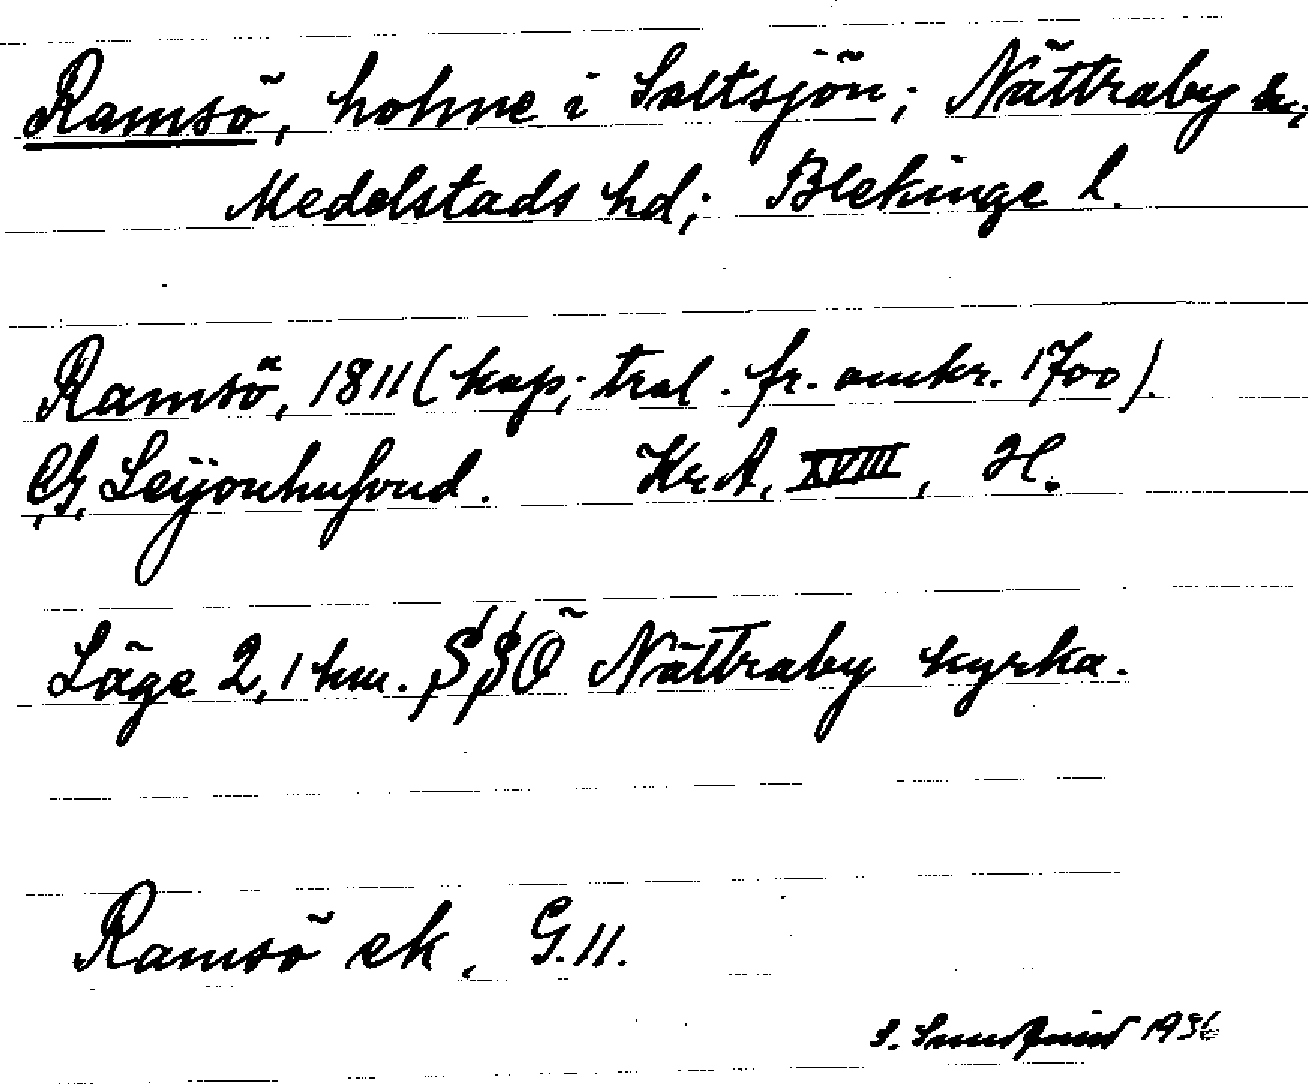 Ramsö, holme i Saltsjön; Nättraby sn;
Medelstads hd; Blekinge l.
Ramsö, 1811 (kop; tral. fr. omkr. 1700).
C.G. Leijonhufvud. Kr.A, XVIII, H.
Läge 2,1 km. SSÖ Nättraby kyrka.
Ramsö ek. G.11.
1936